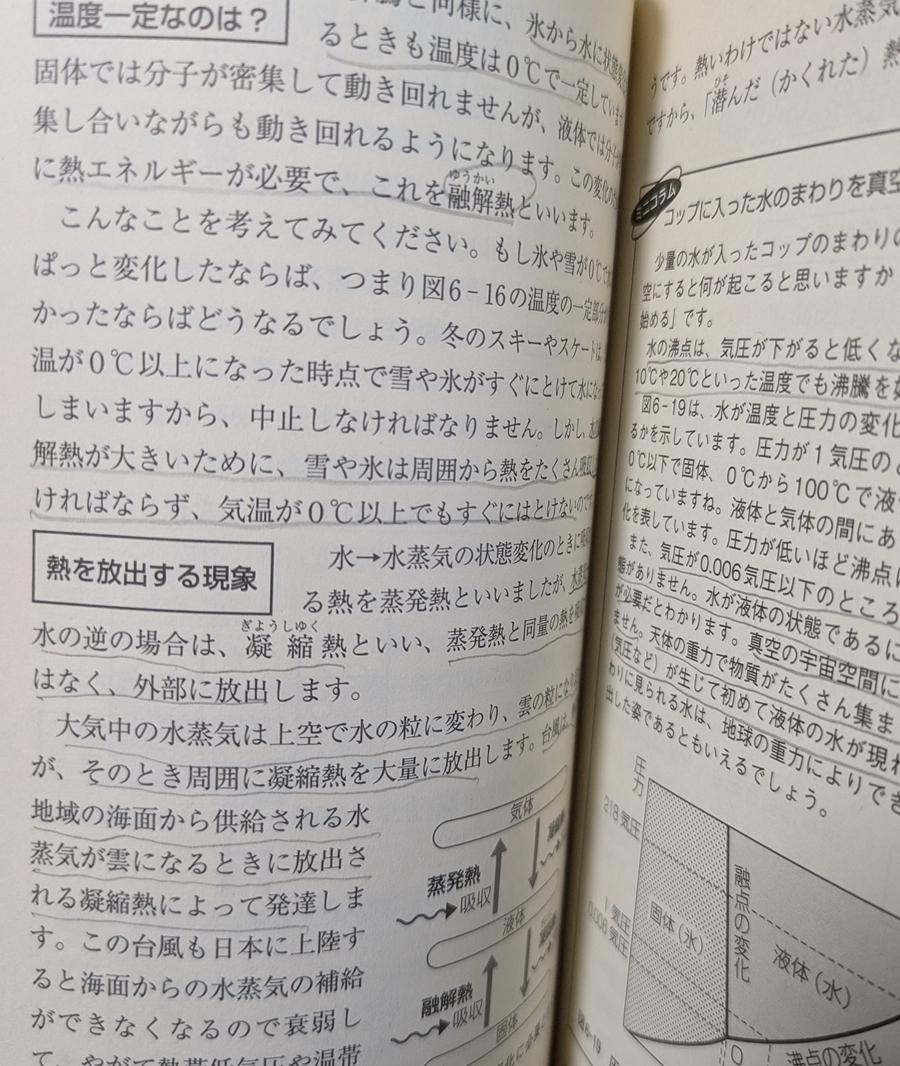 温度一定なのは？
と同様に、氷から水に状態変
るときも温度は0℃で一定しています
固体では分子が密集して動き回れませんが、液体では分子
集し合いながらも動き回れるようになります。この変化の
に熱エネルギーが必要で、これを融解熱といいます。
ゆうかい
こんなことを考えてみてください。もし氷や雪が0℃で
ぱっと変化したならば、つまり図6-16の温度の一定部分
かったならばどうなるでしょう。冬のスキーやスケートは
温が0℃以上になった時点で雪や氷がすぐにとけて水にな
しまいますから、中止しなければなりません。しかし、
解熱が大きいために、雪や氷は周囲から熱をたくさん吸収
ければならず、気温が0℃以上でもすぐにはとけないのです
熱を放出する現象
水→水蒸気の状態変化のときに
る熱を蒸発熱といいましたが、水蒸
水の逆の場合は、凝縮熱といい、蒸発熱と同量の熱を
ぎょうしゅく
はなく、外部に放出します。
大気中の水蒸気は上空で水の粒に変わり、雲の粒にな
が、そのとき周囲に凝縮熱を大量に放出します。台風は、
地域の海面から供給される水
蒸気が雲になるときに放出さ
れる凝縮熱によって発達しま
す。この台風も日本に上陸す
ると海面からの水蒸気の補給
ができなくなるので衰弱し
て、やがて熱帯低気圧や温帯
気体
蒸発熱
吸収
液体
融解熱
吸収
固体
うです。熱いわけではない水蒸気
ですから、「潜んだ（かくれた）熱
ひそ
ミニコラム
コップに入った水のまわりを真空
少量の水が入ったコップのまわりの
空にすると何が起こると思いますか
始める」です。
水の沸点は、気圧が下がると低くな
10℃や20℃といった温度でも沸騰を
図6-19は、水が温度と圧力の変化
るかを示しています。圧力が1気圧の
0℃以下で固体、0℃から100℃で液
になっていますね。液体と気体の間にあ
化を表しています。圧力が低いほど沸点
また、気圧が0.006気圧以下のところ
態がありません。水が液体の状態であるに
が必要だとわかります。真空の宇宙空間に
ません。天体の重力で物質がたくさん集ま
（気圧など）が生じて初めて液体の水が現れ
わりに見られる水は、地球の重力によりでき
出した姿であるともいえるでしょう。
圧力
218気圧
1気圧
0.006気圧
固体（氷）
融点の変化
液体（水）
0
沸点の変化
図6-19